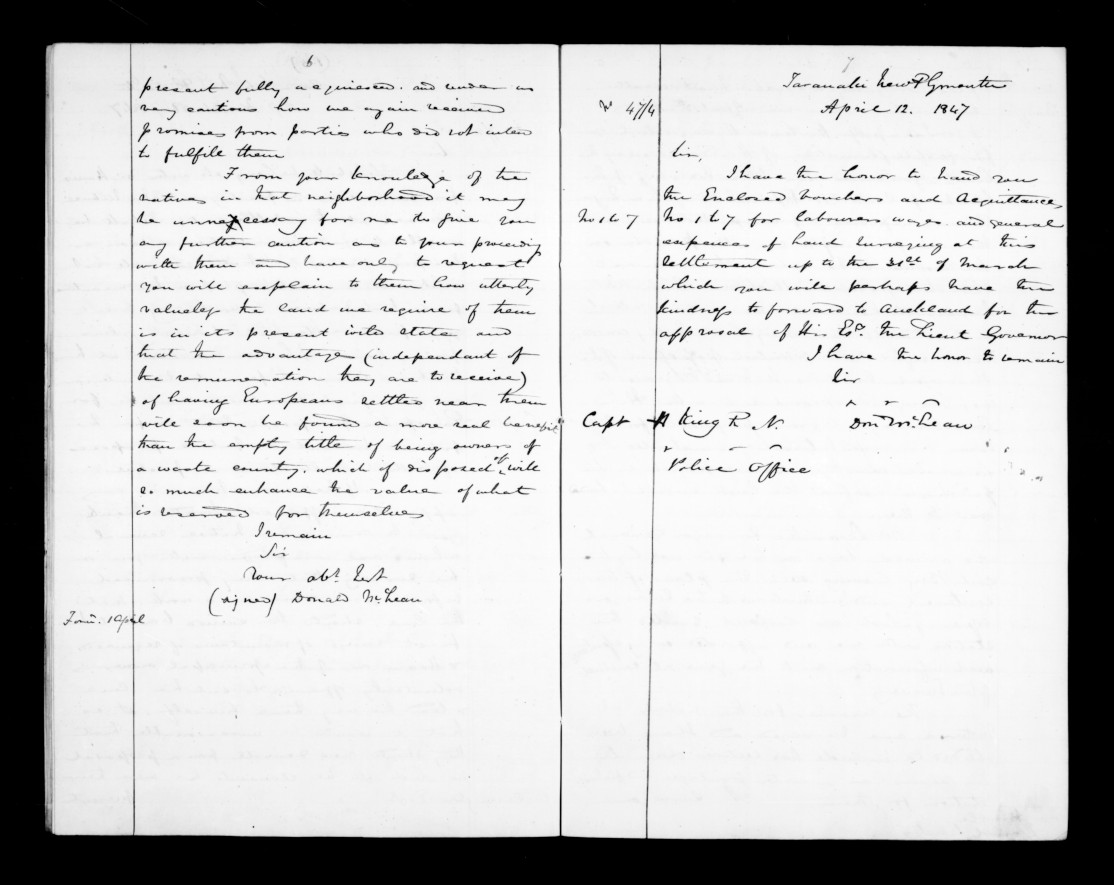 6
present fully acquiesced. and render us
very cautious how we again received
promises from parties who did not intend
to fulfile them
From your knowledge of the
natives in that neighborhood it may
be unnecessary for me to give you
any further caution as to your proceeding
with them and have only to request
you will explain to them how utterly
valueless the land we require of them
is in its present wild state and
that the advantage (independant of
the remuneration they are to receive)
of having Europeans settled near them
will soon be found a more real benefit
than the empty title of being owners of
a waste country. which if disposed of, will
so much enhance the value of what
is reserved for themselves
I remain
Sir
Your obt. Sert
(signed) Donald McLean
Forw. 1 April
7
Taranaki New Plymouth
No 47/4 April 12. 1847
Sir,
I have the honor to hand you
the Enclosed vouchers and Acquittances
No 1 to 7 No 1 to 7 for labourers wages and general
expences of land surveying at this
settlement up to the 31st of March
which you will perhaps have the
kindness to forward to Auckland for the
approval of His Ex. the Lieut Governor
I have the honor to remain
Sir
Capt H King R N. Don McLean
Police Office